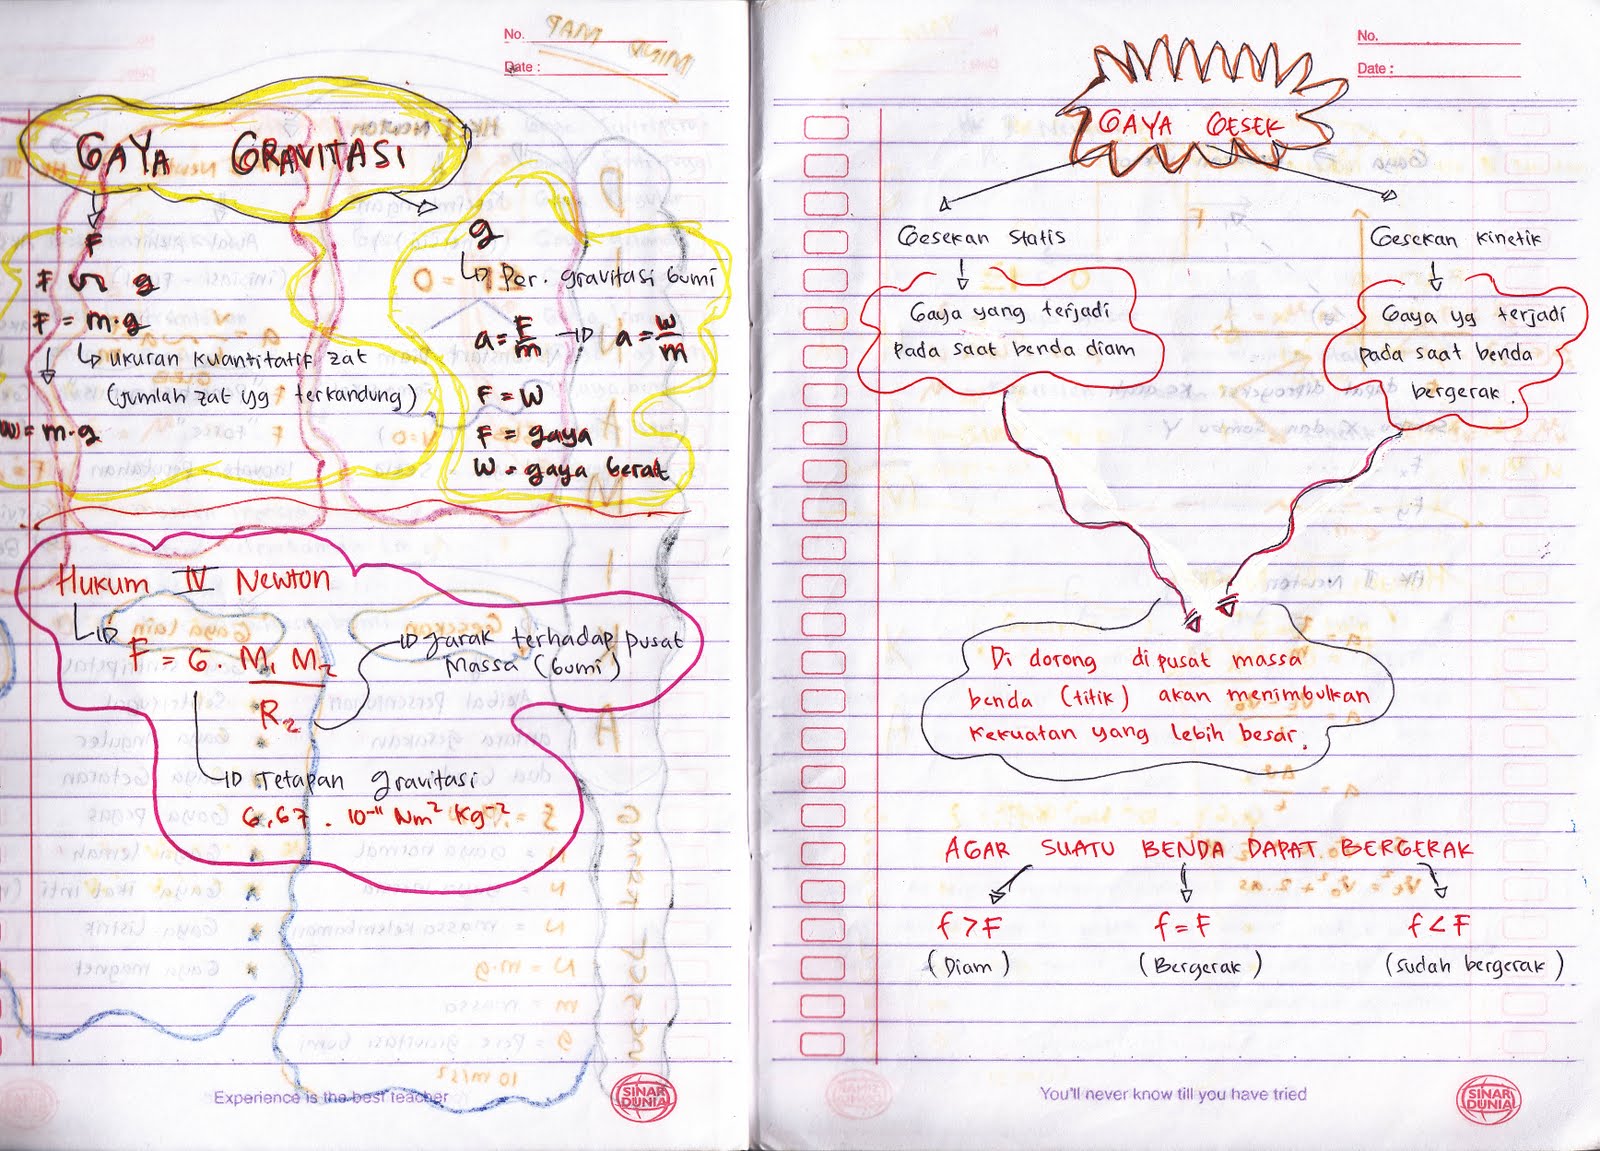 No.
Date :
GAYA GRAVITASI
F
F ∽ g
F = m.g
ukuran kuantitatif zat
(jumlah zat yg terkandung)
W = m.g
g
Per. gravitasi bumi
a = F/m → a = w/m
F = W
F = gaya
W = gaya berat
Hukum IV Newton
F = G . M₁ M₂
R₂
jarak terhadap pusat
Massa (bumi)
Tetapan gravitasi
6,67 . 10⁻¹¹ Nm² Kg⁻²
Experience is the best teacher
SINAR
DUNIA
No.
Date :
GAYA GESEK
Gesekan Statis
Gaya yang terjadi
pada saat benda diam
Gesekan kinetik
Gaya yg terjadi
pada saat benda
bergerak.
Di dorong di pusat massa
benda (titik) akan menimbulkan
kekuatan yang lebih besar.
AGAR SUATU BENDA DAPAT BERGERAK
f > F
f = F
f < F
(Diam)
(Bergerak)
(sudah bergerak)
You'll never know till you have tried
SINAR
DUNIA